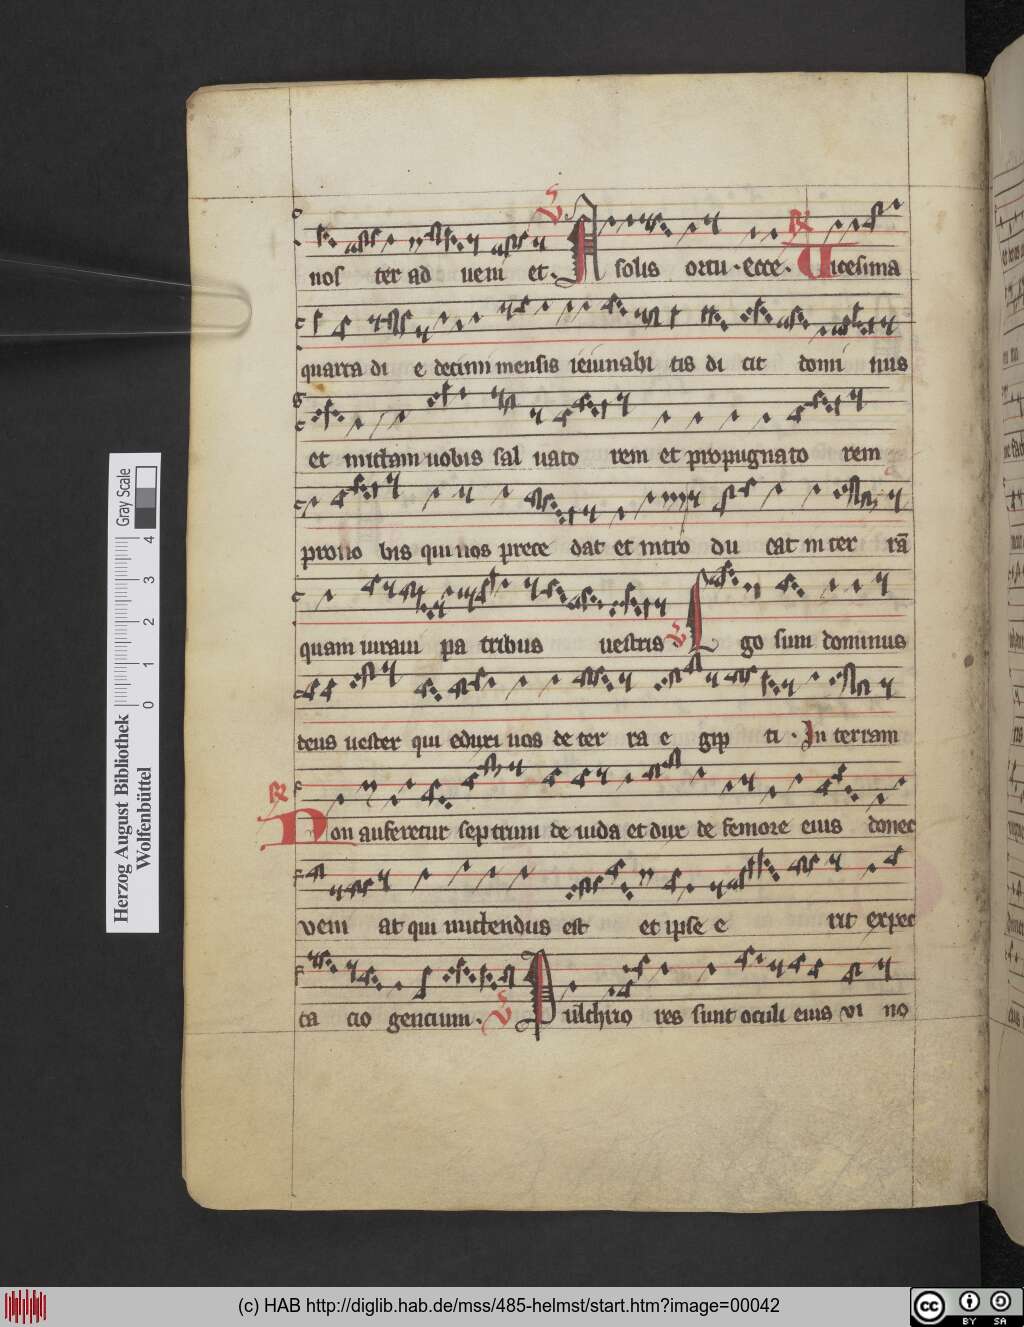 nos ter ad veni et. V A solis ortu. ecce. R Vicesima
quarta di e decimi mensis ieiunabi tis di cit domi nus
et mittam uobis sal uato rem et propugnato rem
pro uo bis qui uos prece dat et intro du cat in ter rā
quam iuraui pa tribus uestris V Ego sum dominus
deus uester qui eduxi uos de ter ra e gip ti. In terram
R Non auferetur septrum de iuda et dux de femore eius donec
veni at qui mittendus est et ipse e rit expec
ta cio gencium. V Pulchrio res sunt oculi eius vi no
Herzog August Bibliothek
Wolfenbüttel
0 1 2 3 4
Gray Scale
(c) HAB http://diglib.hab.de/mss/485-helmst/start.htm?image=00042
cc BY SA